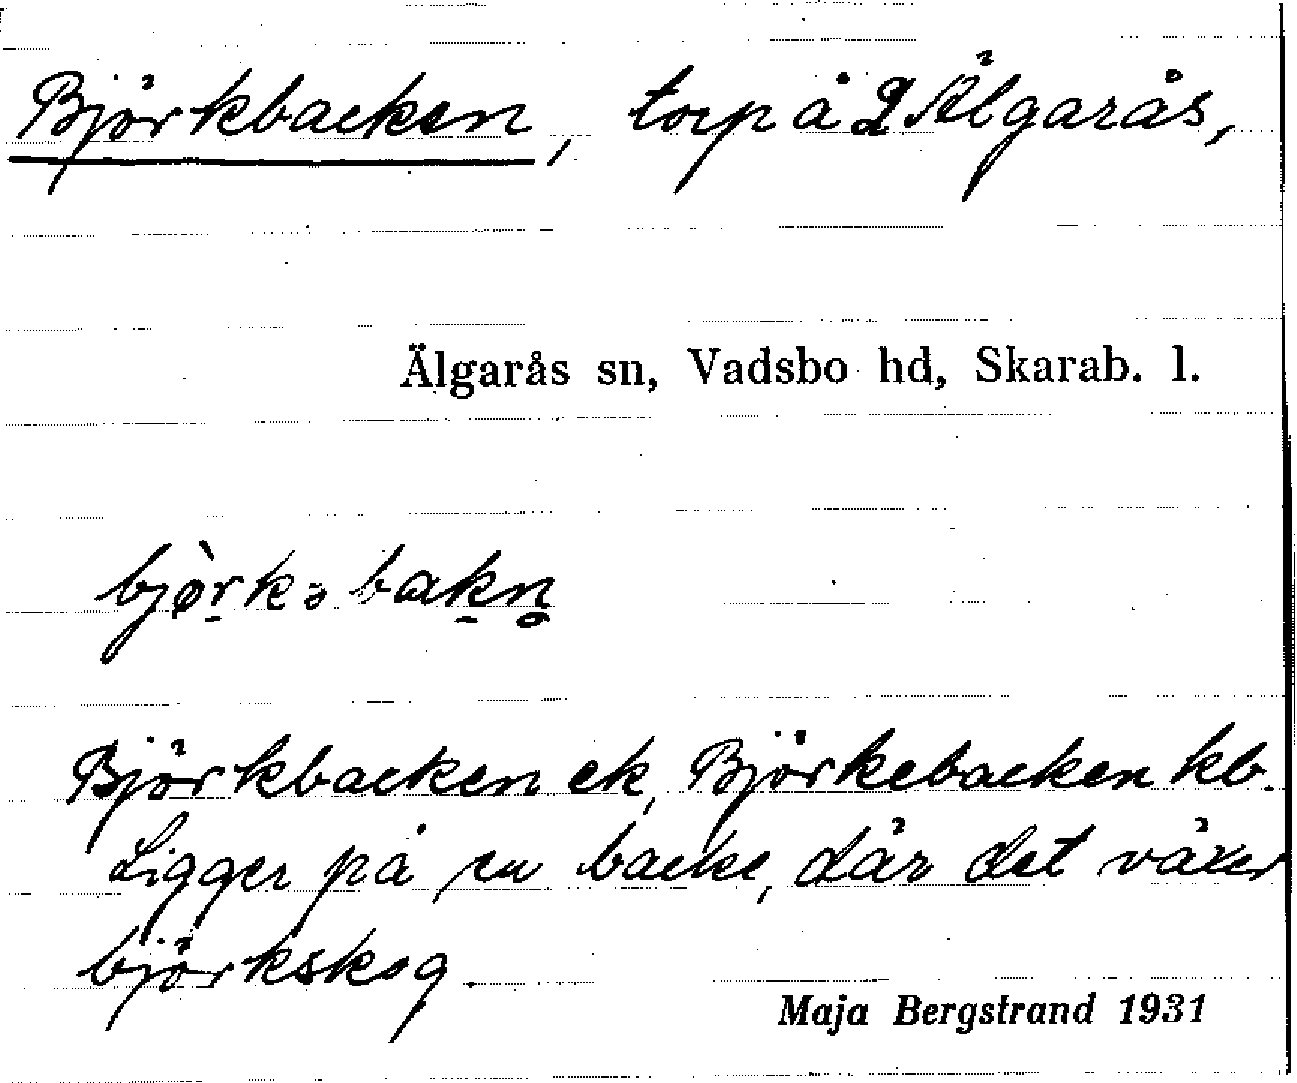 Björkbacken, torp å 2 Älgarås,
Älgarås sn, Vadsbo hd, Skarab. l.
bjø̀rkəbakn̥
Björkbacken ek, Björkebacken kb.
Ligger på en backe, där det växer
björkskog.
Maja Bergstrand 1931